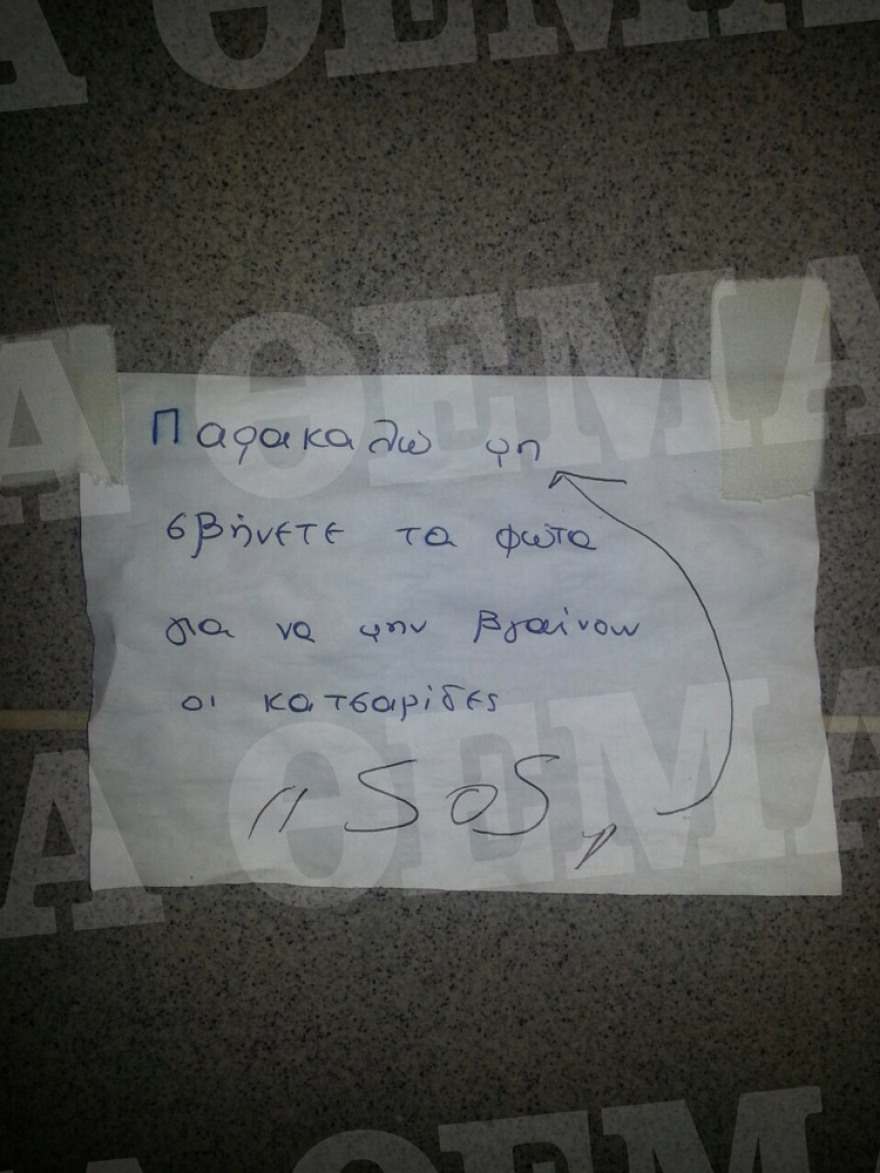 Παρακαλώ μη
σβήνετε τα φώτα
για να μην βγαίνουν
οι κατσαρίδες
"SOS"
ΘΕΜΑ
ΘΕΜΑ
ΘΕΜΑ
ΘΕΜΑ